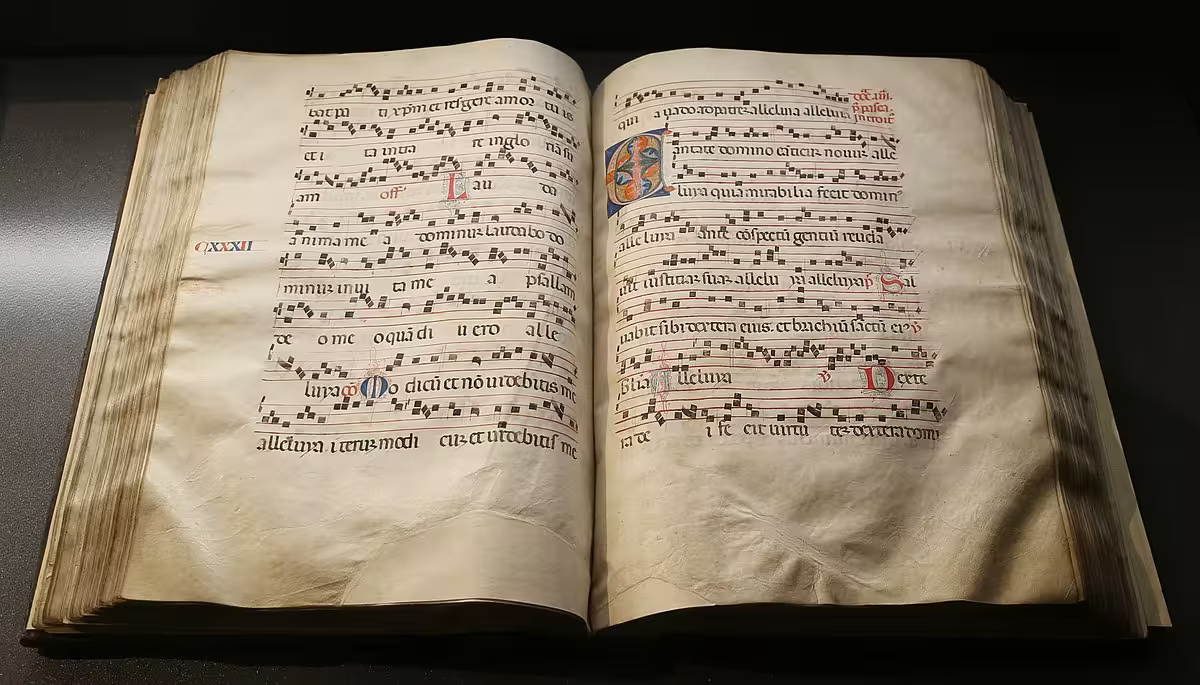 bat pa ti xpm et resurgere a mortuis
et i ta intra re in glo riā su
am off Lau da
CXXXII
a nima me a dominum laudabo do
minum in vi ta me a psallam
de o me o quā di u ero al le
luya cō Mo dicū et nō videbitis me
alleluya iterū modi cūz et videbitis me
qui a vado ad patrē alleluya alleluya
Cantate domino cāticū novū alle
luya quia mirabilia fecit domin⁹
alle luya ante cōspectū gentiū revela
vit iusticiaz suaz allelu ya alleluya p̄ Sal
vabit sibi dextera eius. et brachiū sāctū ei⁹ v̄
Alleluya v̄ Dexte
ra de i fe cit virtu tez dextera domi